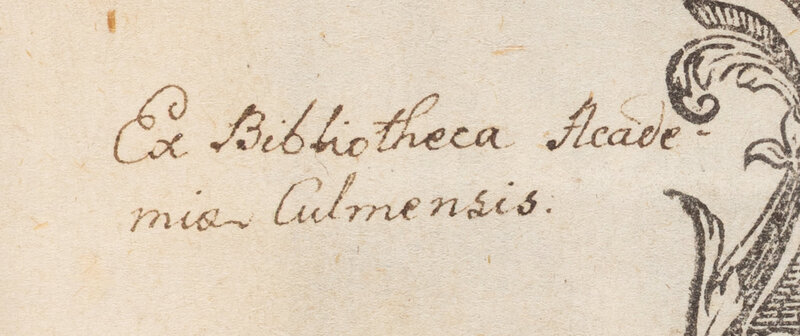 Ex Bibliotheca Acade-
miæ Culmensis.